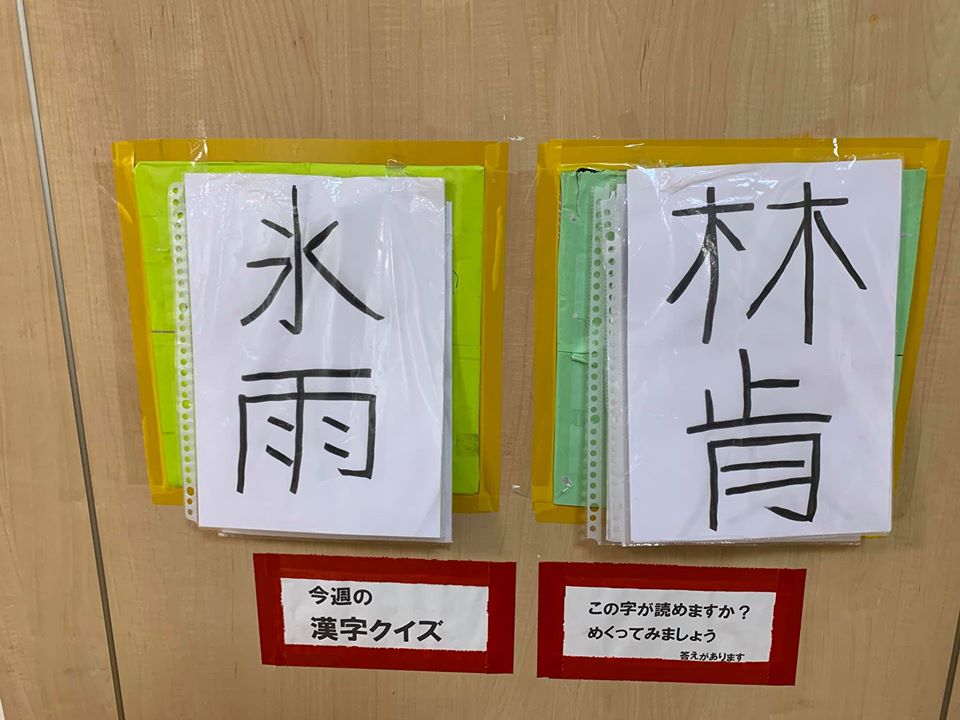 氷雨
林肯
今週の
漢字クイズ
この字が読めますか?
めくってみましょう
答えがあります